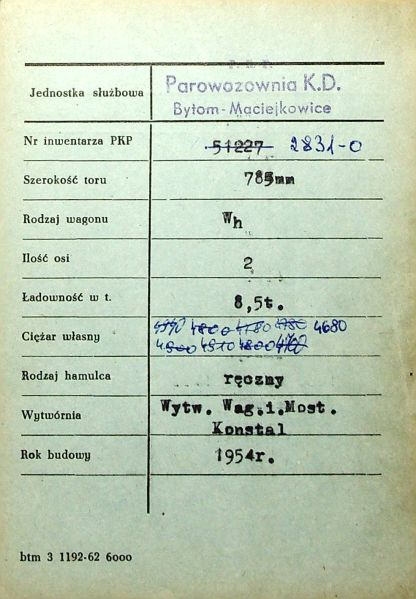 P. K. P.
Jednostka służbowa Parowozownia K.D.
Bytom-Maciejkowice
Nr inwentarza PKP 51227 2831-0
Szerokość toru 785mm
Rodzaj wagonu Wh
Ilość osi 2
Ładowność w t. 8,5t.
Ciężar własny 4800 4780 4680
4800 4810 4800
Rodzaj hamulca ręczny
Wytwórnia Wytw. Wag.i.Most.
Konstal
Rok budowy 1954r.
btm 3 1192-62 6000